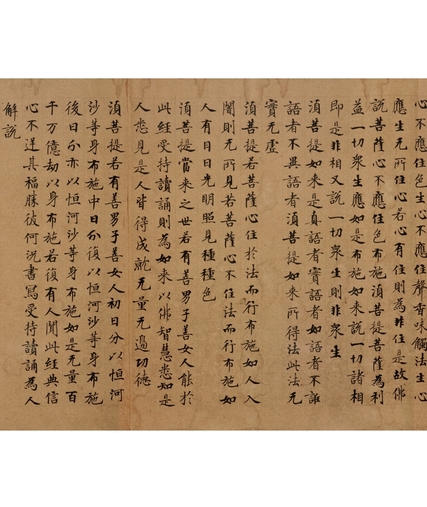 心不應住色生心不應住聲香味觸法生心
應生无所住心若心有住則為非住是故佛
說菩薩心不應住色布施須菩提菩薩為利
益一切衆生應如是布施如來說一切諸相
即是非相又說一切衆生則非衆生
須菩提如來是真語者實語者如語者不誑
語者不異語者須菩提如來所得法此法无
實无虛
須菩提若菩薩心住於法而行布施如人入
闇則无所見若菩薩心不住法而行布施如
人有目日光明照見種種色
須菩提當來之世若有善男子善女人能於
此經受持讀誦則為如來以佛智慧悉知是
人悉見是人皆得成就无量无邊功德
須菩提若有善男子善女人初日分以恒河
沙等身布施中日分復以恒河沙等身布施
後日分亦以恒河沙等身布施如是无量百
千万億劫以身布施若復有人聞此經典信
心不逆其福勝彼何況書寫受持讀誦為人
解說